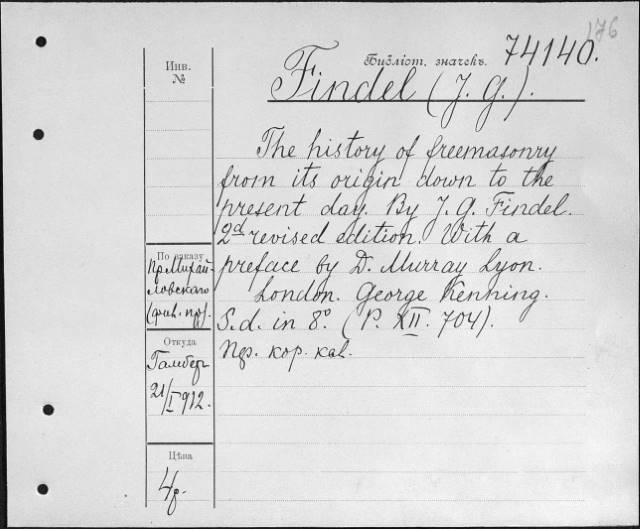 176
Библіот. значекъ. 74140.
Инв. №
Findel (J. G.).
The history of freemasonry
from its origin down to the
present day. By J. G. Findel.
2d revised edition. With a
preface by D. Murray Lyon.
London. George Kenning.
S.d. in 8°. (P. XII. 704).
Пер. кор. кал.
По заказу
Пр. Михай-
ловскаго
Откуда
Гамберг
21/I 912.
Цѣна
4р.